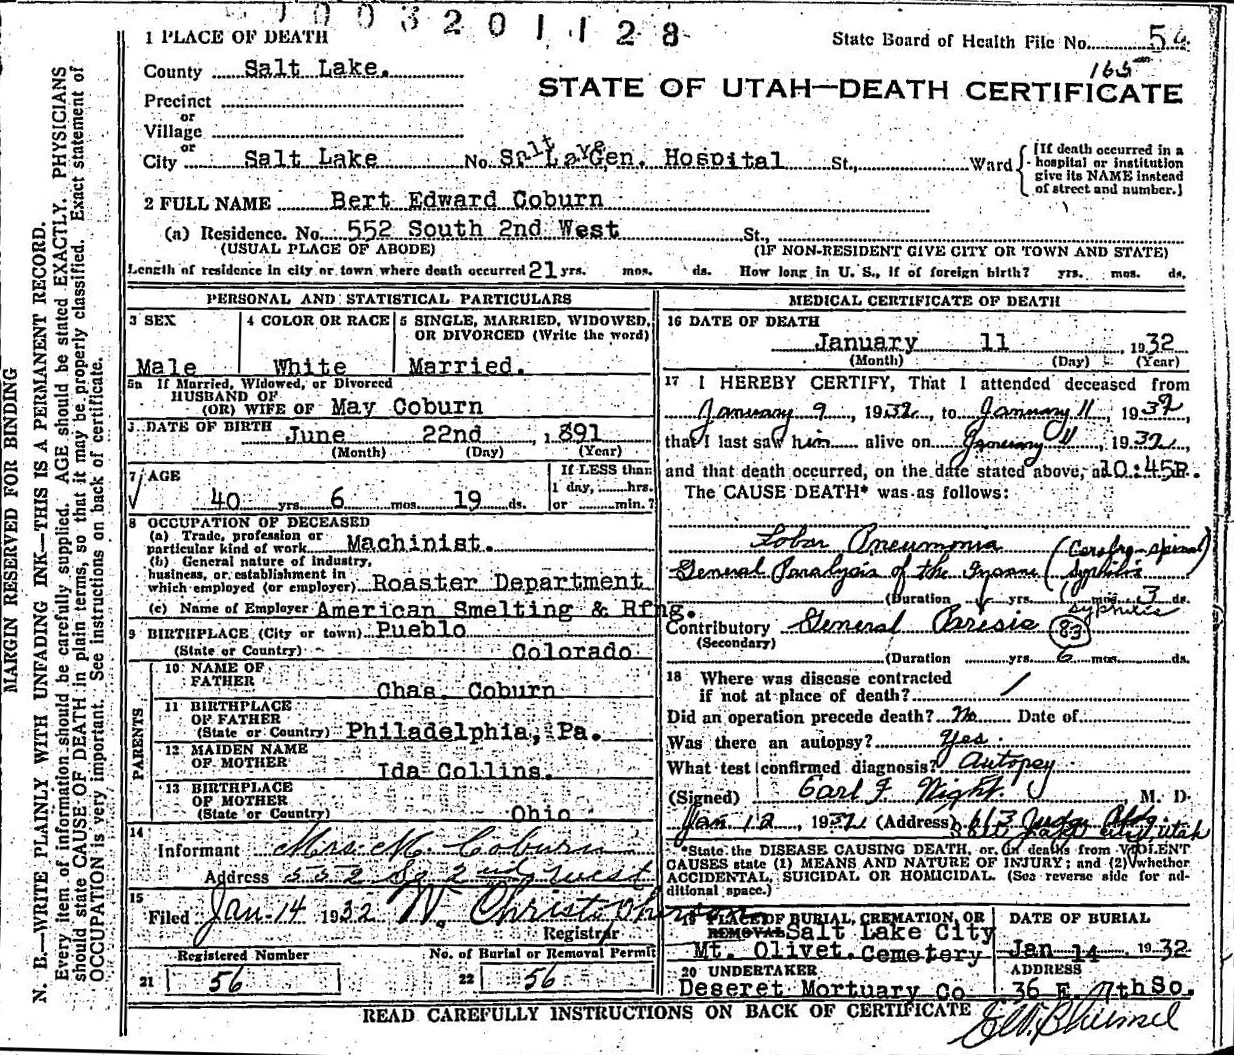 003201128
1 PLACE OF DEATH
State Board of Health File No. 54
165
County Salt Lake.
STATE OF UTAH—DEATH CERTIFICATE
Precinct
or
Village
or
City Salt Lake No. Salt Lake Gen. Hospital St., Ward
[If death occurred in a
hospital or institution
give its NAME instead
of street and number.]
2 FULL NAME Bert Edward Coburn
(a) Residence. No. 552 South 2nd West St.,
(USUAL PLACE OF ABODE) (IF NON-RESIDENT GIVE CITY OR TOWN AND STATE)
Length of residence in city or town where death occurred 21 yrs. mos. ds. How long in U. S., if of foreign birth? yrs. mos. ds.
PERSONAL AND STATISTICAL PARTICULARS
3 SEX
4 COLOR OR RACE
5 SINGLE, MARRIED, WIDOWED,
OR DIVORCED (Write the word)
Male White Married.
5a If Married, Widowed, or Divorced
HUSBAND OF
(OR) WIFE OF May Coburn
DATE OF BIRTH June 22nd, 1891
(Month) (Day) (Year)
7 AGE
40 yrs. 6 mos. 19 ds.
If LESS than
1 day, hrs.
or min.?
8 OCCUPATION OF DECEASED
(a) Trade, profession or
particular kind of work Machinist.
(b) General nature of industry,
business, or establishment in
which employed (or employer) Roaster Department
(c) Name of Employer American Smelting & Rfng.
9 BIRTHPLACE (City or town) Pueblo
(State or Country) Colorado
PARENTS
10 NAME OF
FATHER Chas. Coburn
11 BIRTHPLACE
OF FATHER
(State or Country) Philadelphia, Pa.
12 MAIDEN NAME
OF MOTHER Ida Collins.
13 BIRTHPLACE
OF MOTHER
(State or Country) Ohio
14
Informant Mrs. M. Coburn
Address 552 So 2nd west
15
Filed Jan-14 1932
Registrar
Registered Number
21 56
No. of Burial or Removal Permit
22 56
MEDICAL CERTIFICATE OF DEATH
16 DATE OF DEATH
January 11 1932
(Month) (Day) (Year)
17 I HEREBY CERTIFY, That I attended deceased from
January 9, 1932, to January 11, 1932,
that I last saw him alive on January 11, 1932
and that death occurred, on the date stated above, at 10:45P.
The CAUSE DEATH* was as follows:
Lobar Pneumonia (Cerebro-spinal)
General Paralysis of the Insane (syphilis)
(Duration yrs. mos. 3 ds.
syphilis
Contributory General Paresis 83
(Secondary)
(Duration yrs. 6 mos. ds.
18 Where was disease contracted
if not at place of death?
Did an operation precede death? No Date of
Was there an autopsy? Yes.
What test confirmed diagnosis? Autopsy
(Signed) Earl F. Wight. M. D.
Jan 12, 1932 (Address) 613 Judge Bldg.
Salt Lake City, Utah
*State the DISEASE CAUSING DEATH, or, in deaths from VIOLENT
CAUSES state (1) MEANS AND NATURE OF INJURY; and (2) whether
ACCIDENTAL, SUICIDAL OR HOMICIDAL. (See reverse side for additional space.)
19 PLACE OF BURIAL, CREMATION, OR
REMOVAL Salt Lake City
Mt. Olivet. Cemetery
DATE OF BURIAL
Jan 14 1932
20 UNDERTAKER
Deseret Mortuary Co
ADDRESS
36 E. 7th So.
READ CAREFULLY INSTRUCTIONS ON BACK OF CERTIFICATE
MARGIN RESERVED FOR BINDING
N. B.—WRITE PLAINLY WITH UNFADING INK—THIS IS A PERMANENT RECORD.
Every item of information should be carefully supplied. AGE should be stated EXACTLY. PHYSICIANS
should state CAUSE OF DEATH in plain terms, so that it may be properly classified. Exact statement of
OCCUPATION is very important. See instructions on back of certificate.